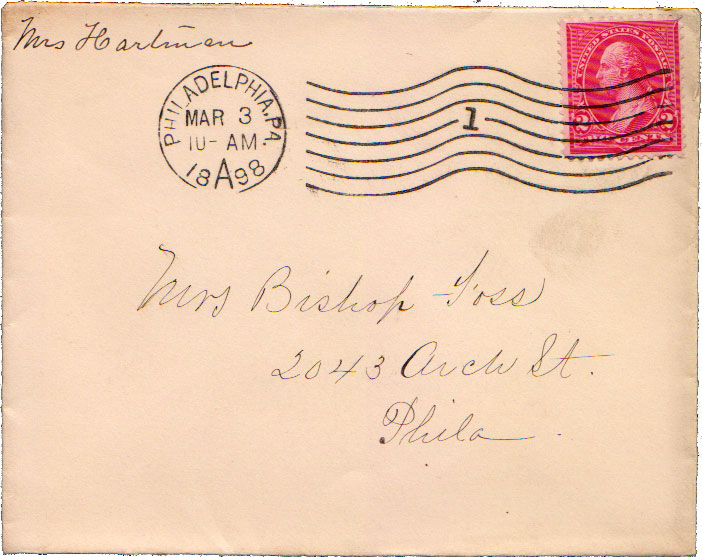 Mrs Hartman
PHILADELPHIA, PA.
MAR 3
10- AM.
18 A 98
1
UNITED STATES POSTAGE
2 2
CENTS
Mrs Bishop Foss
2043 Arch St.
Phila